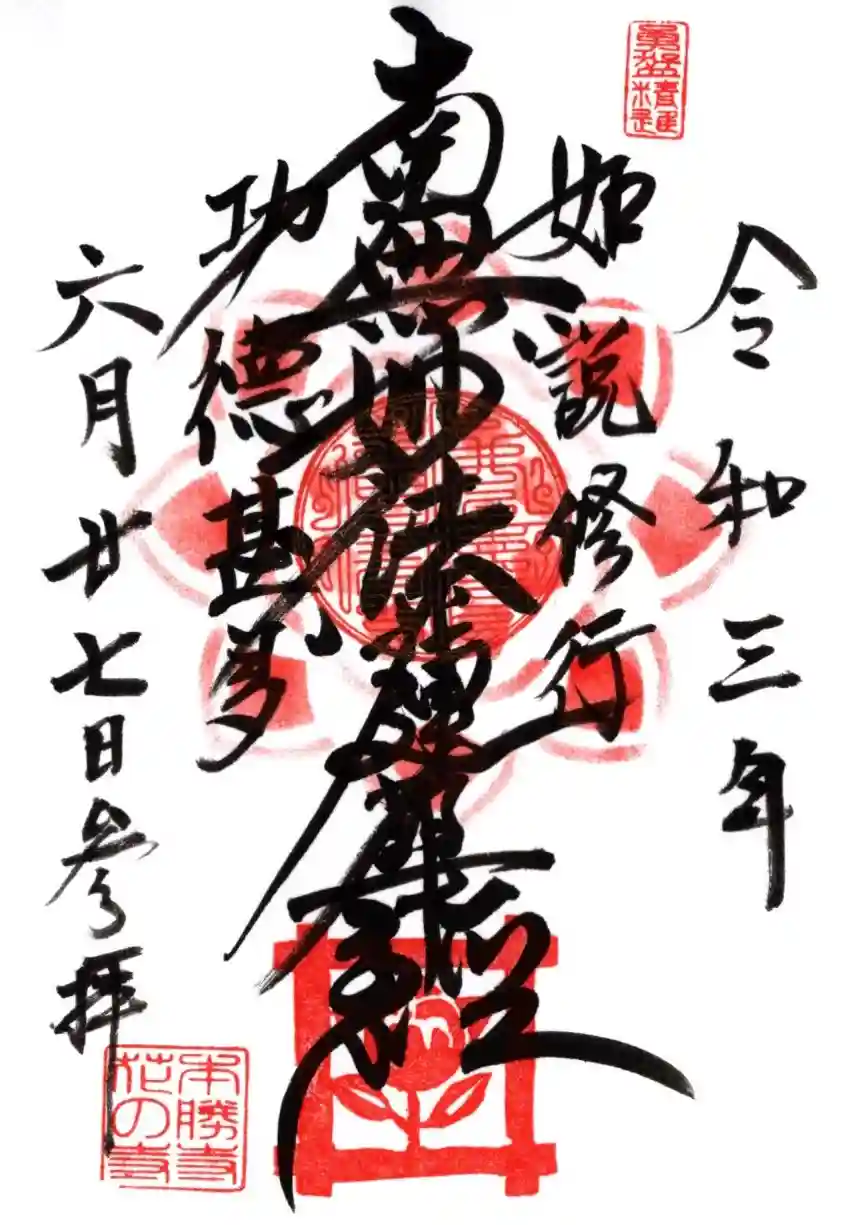 勇猛精進
令和三年
如説修行
南無妙法蓮華経
功徳甚多
六月廿七日参拝
本勝寺
花の寺